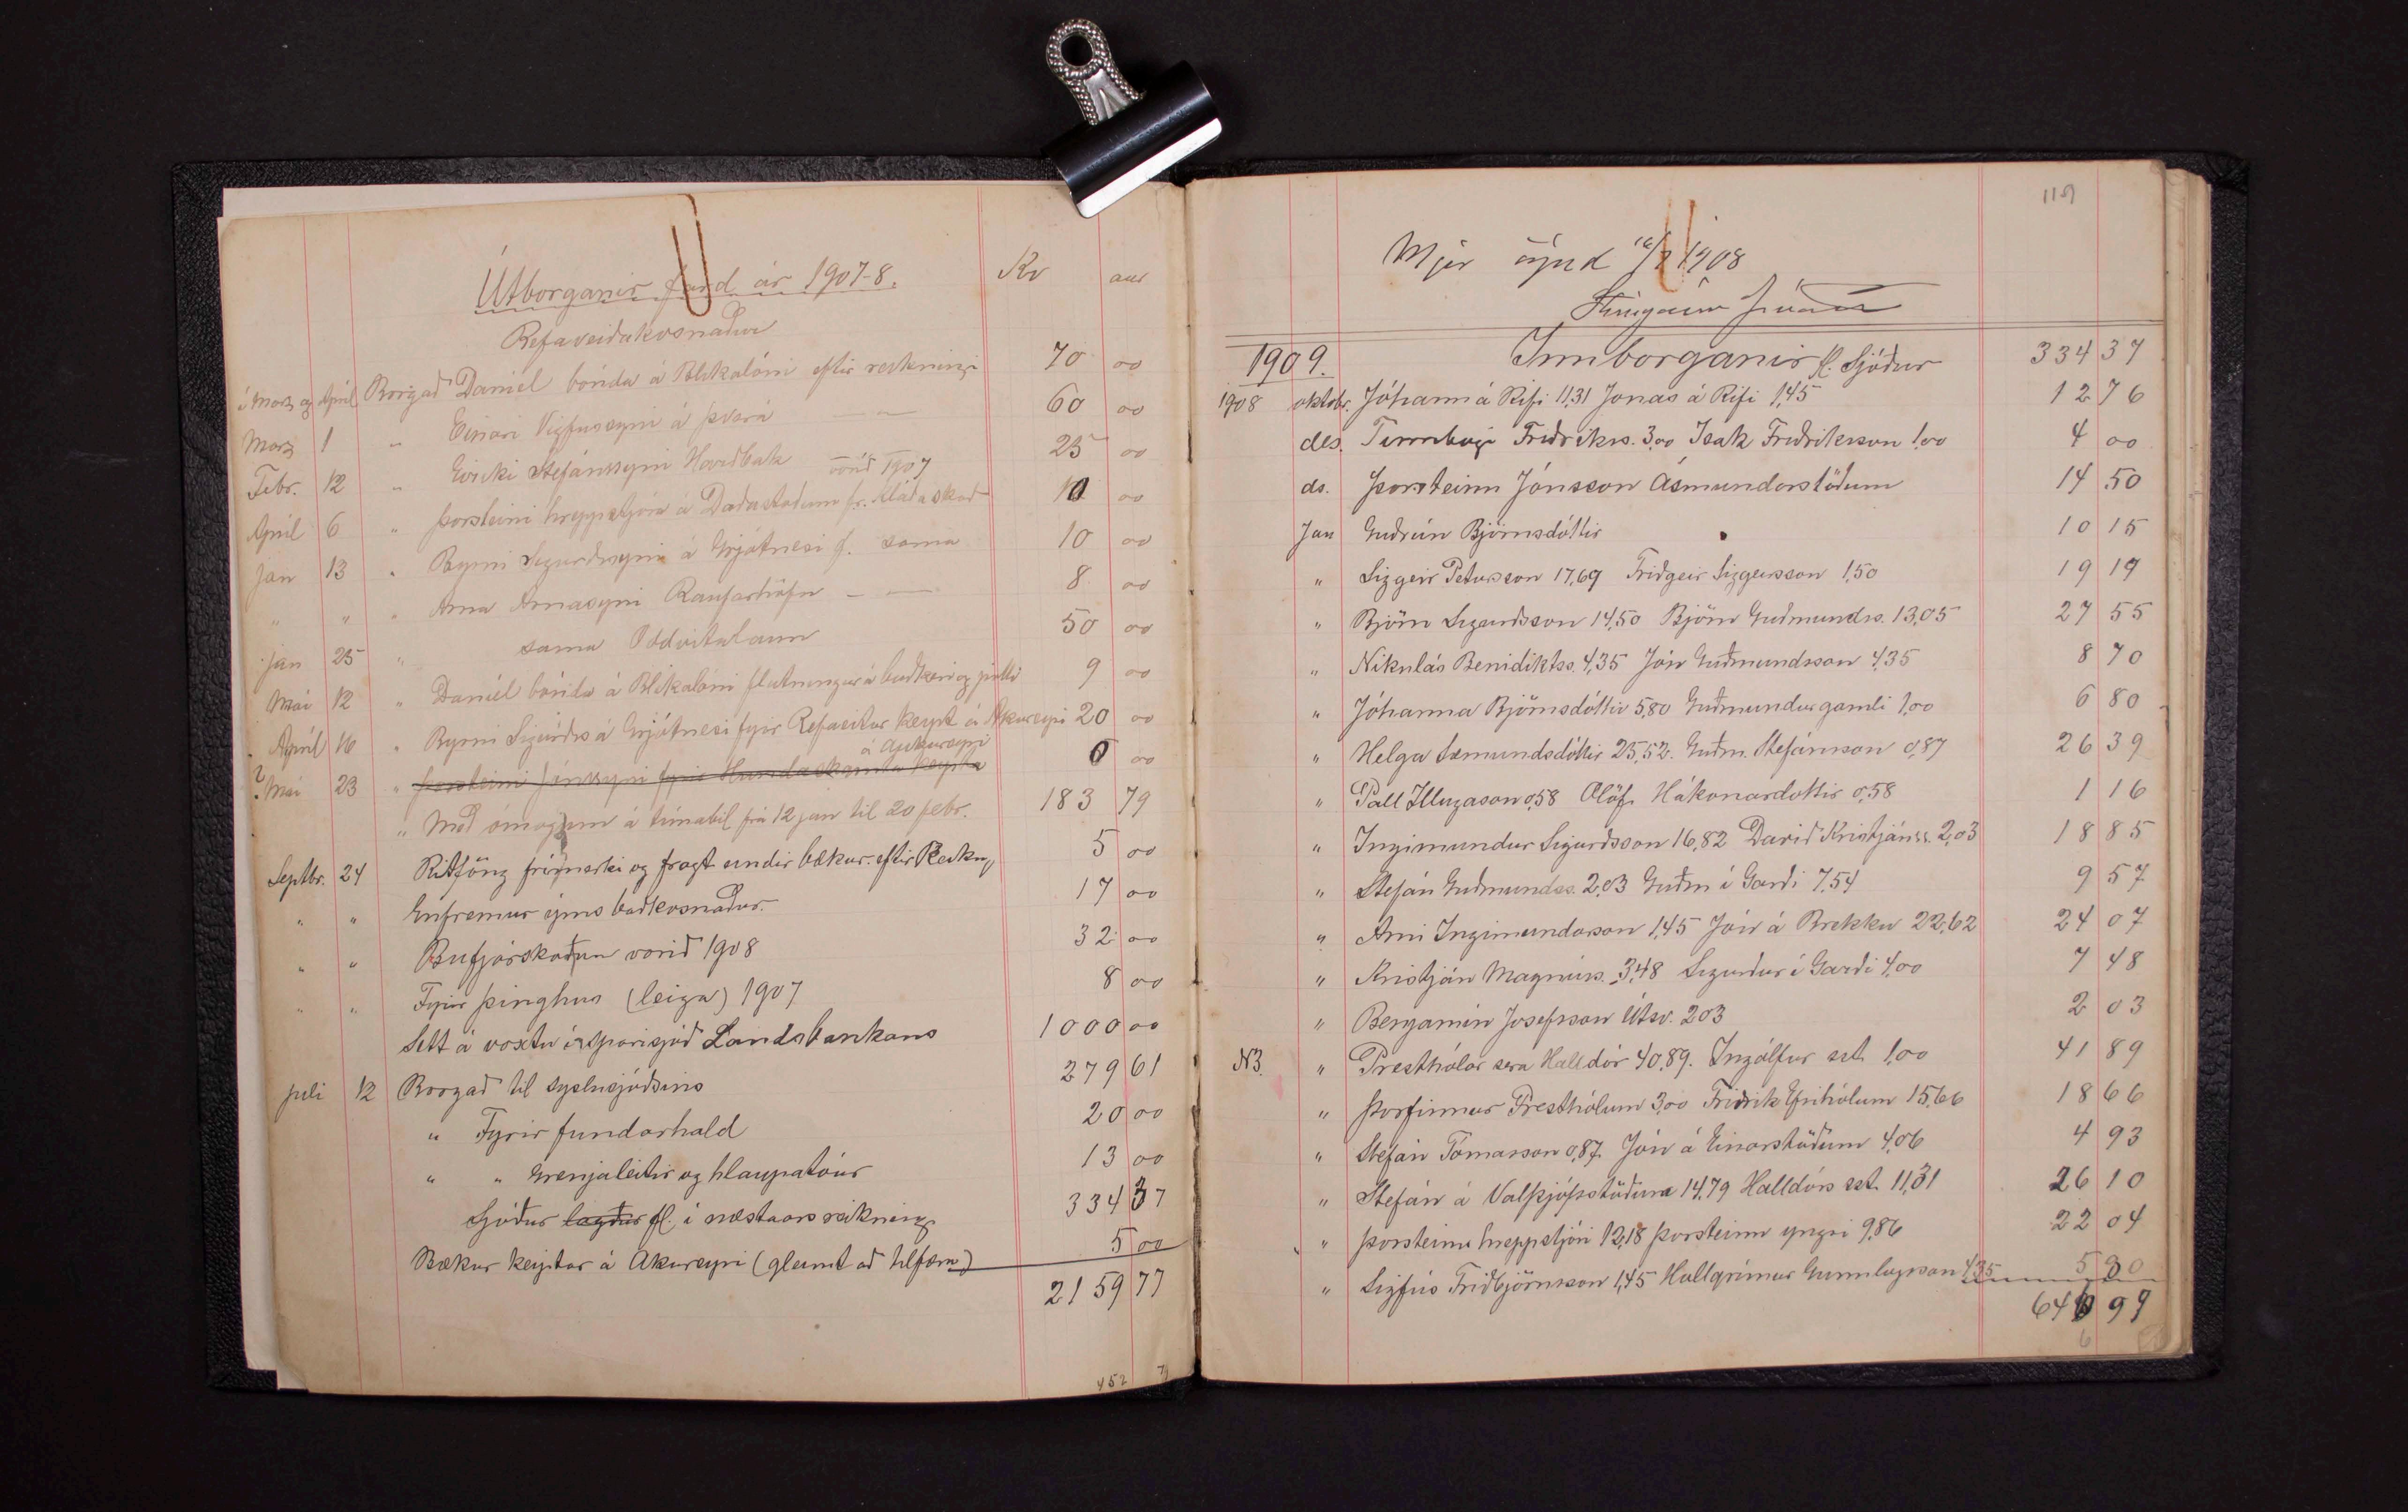 Útborganir fard ár 1907-8. Kr aur
Refaveiðakosnaður
í Mars og Apríl Borgað Daniel bónda á Blikalóni eftir reikningi 70 00
Mars 1 " Einari Vigfússyni á Þverá — — 60 00
Febr. 12 " Eiriki Stefánssyni Harðbak vorið 1907 25 00
Apríl 6 " Þorsteini hreppstjóra á Daðastöðum fr. kláðaskoð 10 00
Jan 13 " Byrni Sigurðssyni á Grjótnesi f. sama 10 00
" " " Árna Árnasyni Raufarhöfn — — 8 00
Jan 25 " sama Oddvitalaun 50 00
Mai 12 " Daníel bónda á Blikalóni flutningur á baðkeri og potti 9 00
Apríl 16 " Byrni Sigurðss á Grjótnesi fyrir Refaeitur keypt á Akureyri 20 00
á Akureyri
? Mai 23 " Þorsteini Jónssyni fyrir Hundaskamta keypta 0 00
" Með ómögum á tímabil frá 12 jan til 20 febr. 183 79
Septbr. 24 Ritföng frímerki og fragt undir bækur. eftir Reikn. 5 00
" " Enfremur ýms baðkosnaður. 17 00
" " Bufjárskoðun vorið 1908 32 00
" " Fyrir þinghus (leiga) 1907 8 00
Sett á voxtu í sparisjóð Landsbankans 1000 00
Juli 12 Borgað til syslusjóðsins 279 61
" Fyrir fundarhald 20 00
" " Grenjaleitir og hlaupatóur 13 00
Sjóður lagður fl. í næstaárs reikning 334 37
Bækur keyptar á Akureyri (gleymt að tilfæra) 5 00
2159 77
452 79
119
Mjer sýnd 16/7 1908
1909. Innborganir fl. Sjóður 334 37
1908 oktobr. Jóhann á Rifi 11,31 Jonas á Rifi 1,45 12 76
des. Finnbogi Friðrikss. 3,00 Isak Friðriksson 1,00 4 00
ds. Þorsteinn Jónsson Ásmundarstöðum 14 50
Jan Guðrún Björnsdóttir 10 15
" Siggeir Petursson 17,69 Friðgeir Siggeirsson 1,50 19 19
" Björn Sigurðsson 14,50 Björn Guðmundss. 13,05 27 55
" Nikulás Benidiktss. 4,35 Jón Guðmundsson 4,35 8 70
" Jóhanna Björnsdóttir 5,80 Guðmundur gamli 1,00 6 80
" Helga Sæmundsdóttir 25,52. Guðm. Stefánsson 0,87 26 39
" Páll Illugason 0,58 Ólöf Hákonardóttir 0,58 1 16
" Ingimundur Sigurðsson 16,82 Davið Kristjánss. 2,03 18 85
" Stefán Guðmundss. 2,03 Guðm í Garði 7,54 9 57
" Árni Ingimundarson 1,45 Jón á Brekku 22,62 24 07
" Kristján Magnúss. 3,48 Sigurður í Garði 4,00 7 48
" Benjamin Josefsson Útsv. 203 2 03
N3. " Presthólar sera Halldór 40,89. Ingólfur sst. 1,00 41 89
" Þorfinnur Presthólum 3,00 Friðrik Efrihólum 15,66 18 66
" Stefán Tómasson 0,87 Jón á Einarstöðum 4,06 4 93
" Stefán á Valþjófsstöðum 14,79 Halldórs sst. 11,31 26 10
" Þorsteinn hreppstjóri 12,18 Þorsteinn yngri 9,86 22 04
" Sigfús Friðbjörnsson 1,45 Hallgrímur Gunnlugsson 4,35 5 80
646 99
6